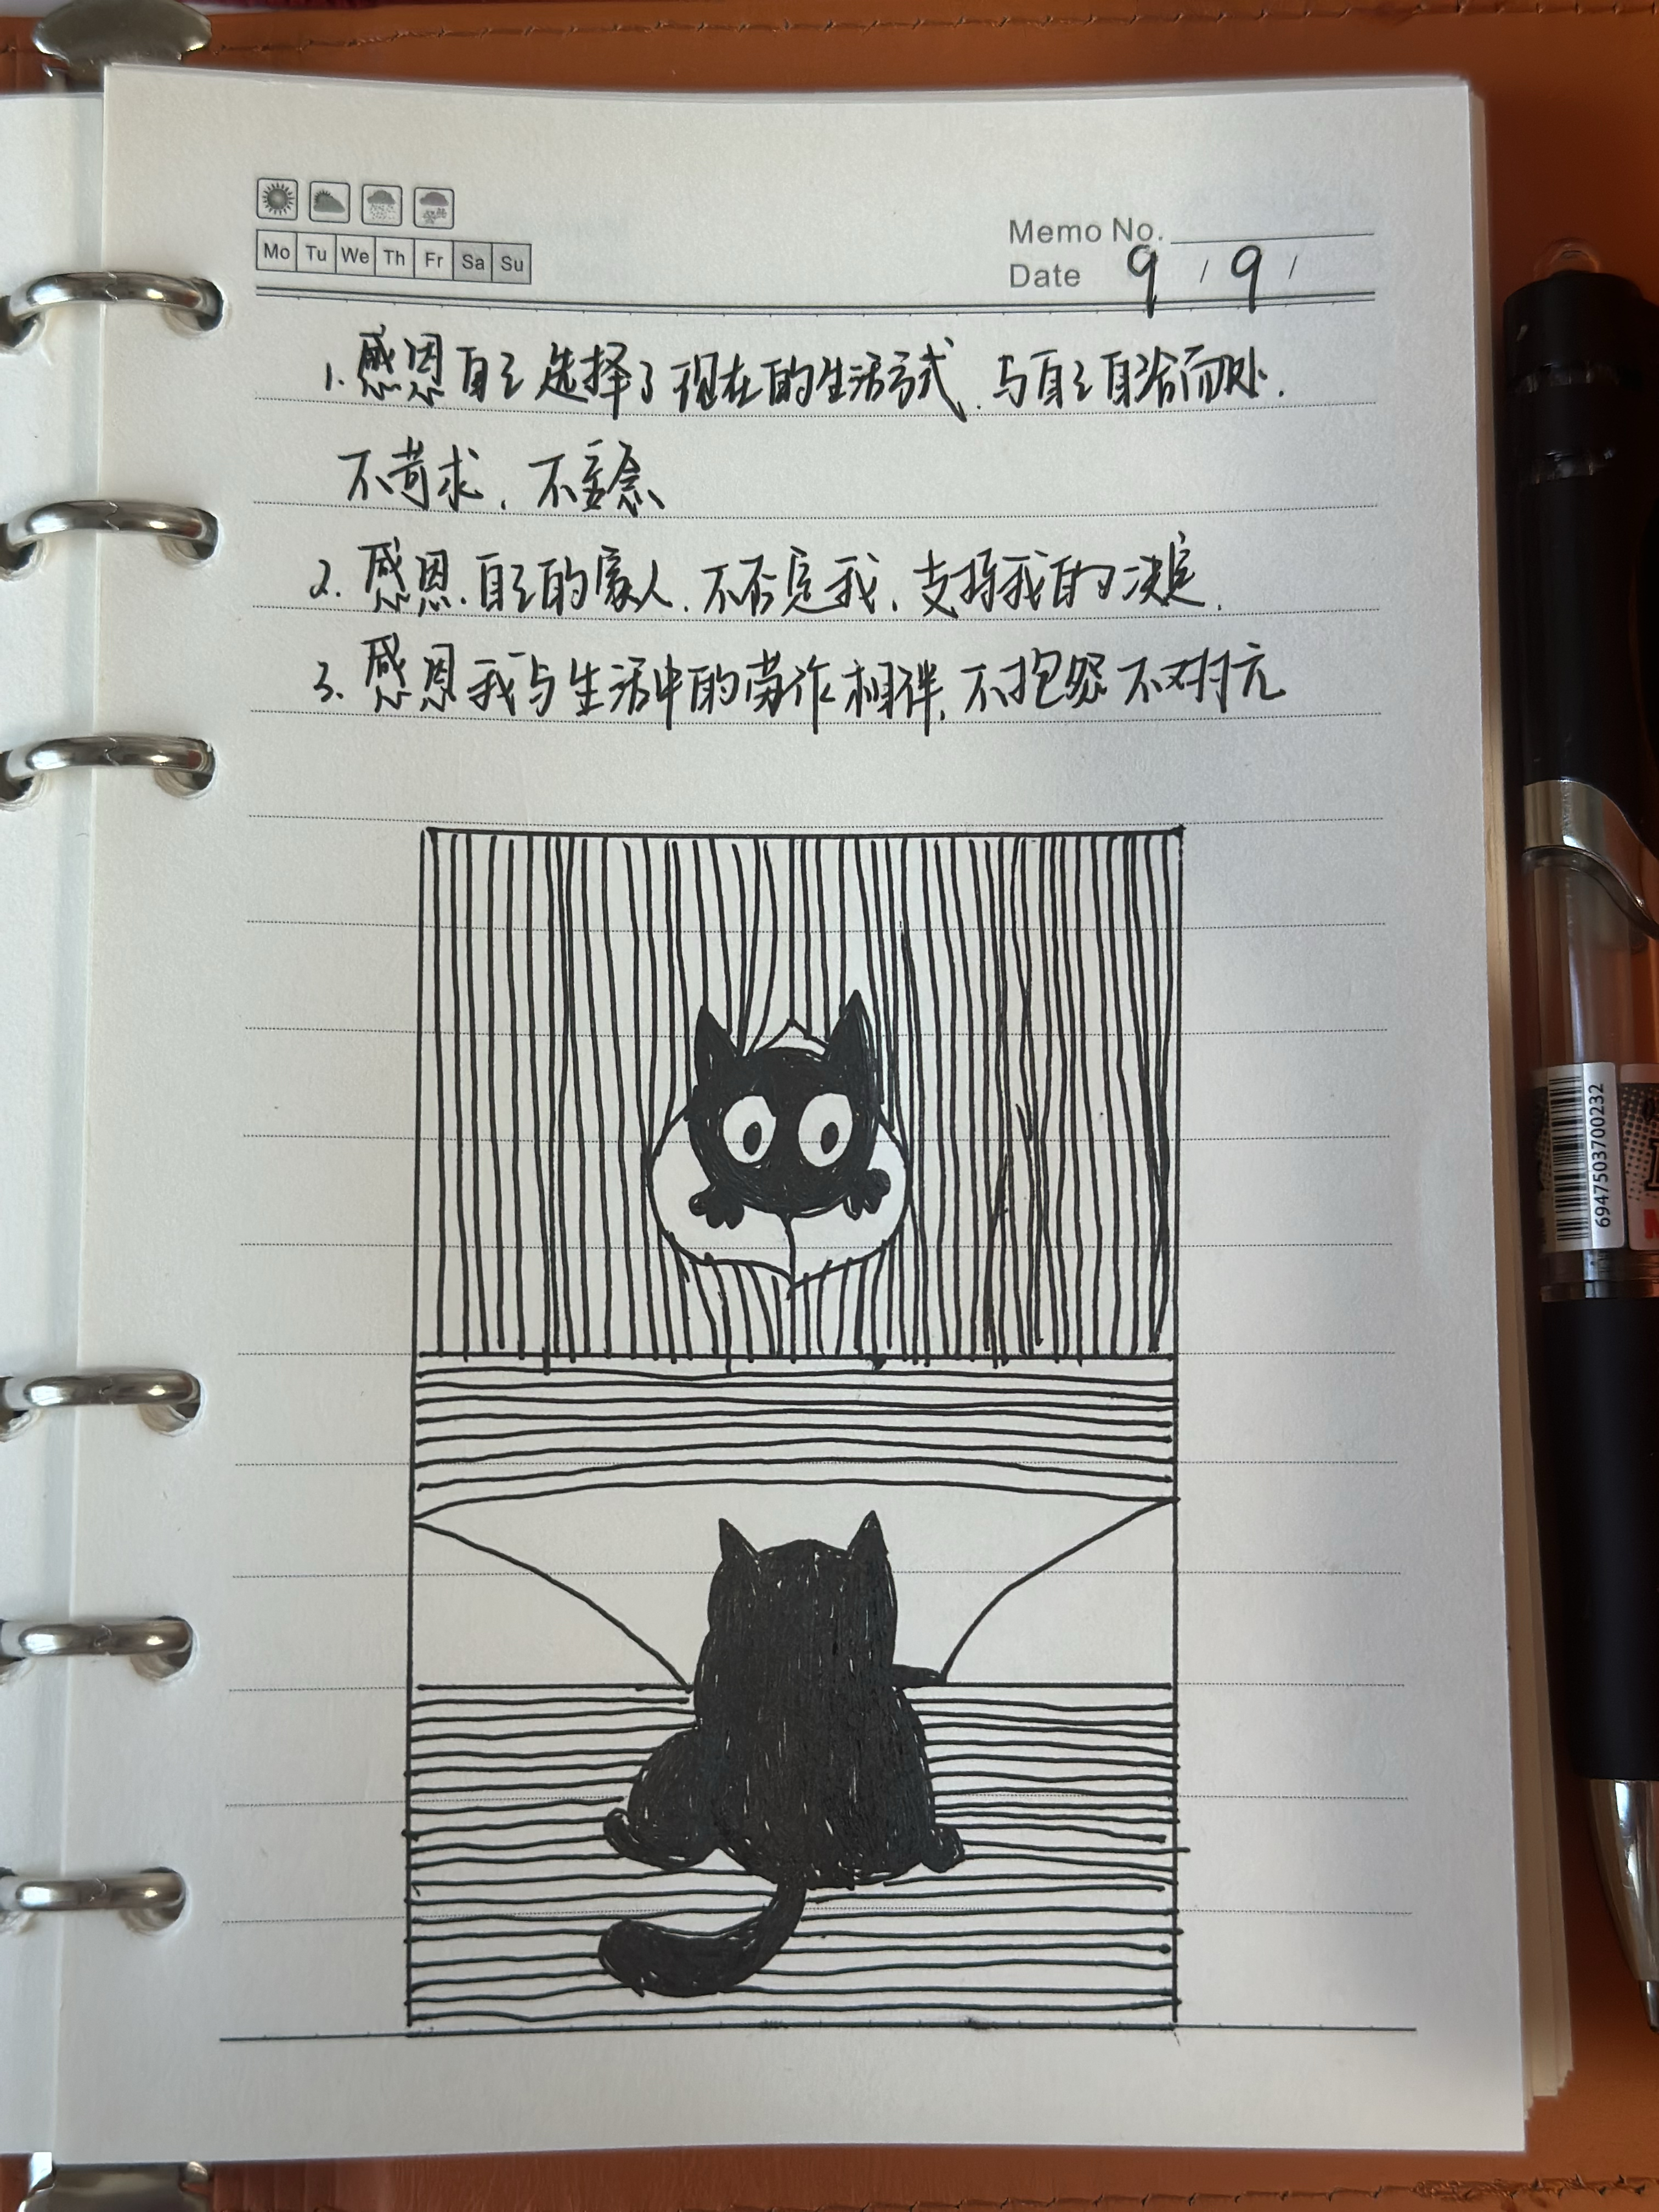 Mo Tu We Th Fr Sa Su
Memo No.
Date 9 / 9 /
1. 感恩自己选择了现在的生活方式、与自己自洽而处.
不苛求、不妄念
2. 感恩.自己的家人.不否定我、支持我的决定.
3. 感恩我与生活中的劳作相伴,不抱怨不对抗
6947503700232